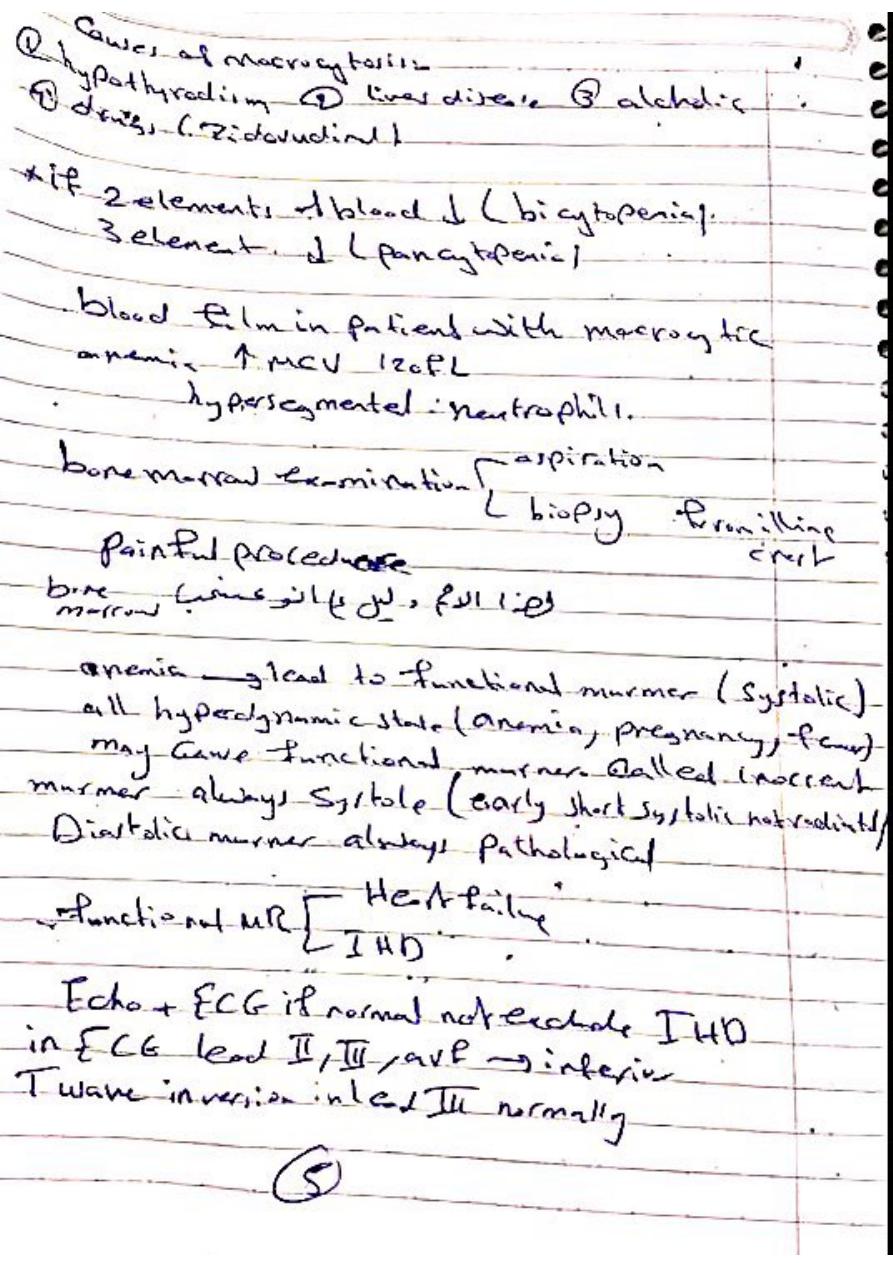 Causes of macrocytosis
① hypothyrodism ② liver disease ③ alcholic
④ drugs (Zidovudine)
*if 2 elements of blood ↓ (bicytopenia).
3 element ↓ (pancytopenia)
blood film in patient with macrocytic
anemia ↑ MCV 120fL
hypersegmented neutrophils.
bone marrow examination aspiration
biopsy from illiac
crest
Painful procedure
bone marrow
anemia → lead to functional murmer (Systolic)
all hyperdynamic state (anemia, pregnancy, fever)
may cause functional murmer. Called inoccent
murmer always Systole (early short systolic not radiated)
Diastolic murmer always Pathological
functional MR Heart failure
IHD
Echo + ECG if normal not exclude IHD
in ECG lead II, III, avf → inferior
T wave inversion in lead III normally
5